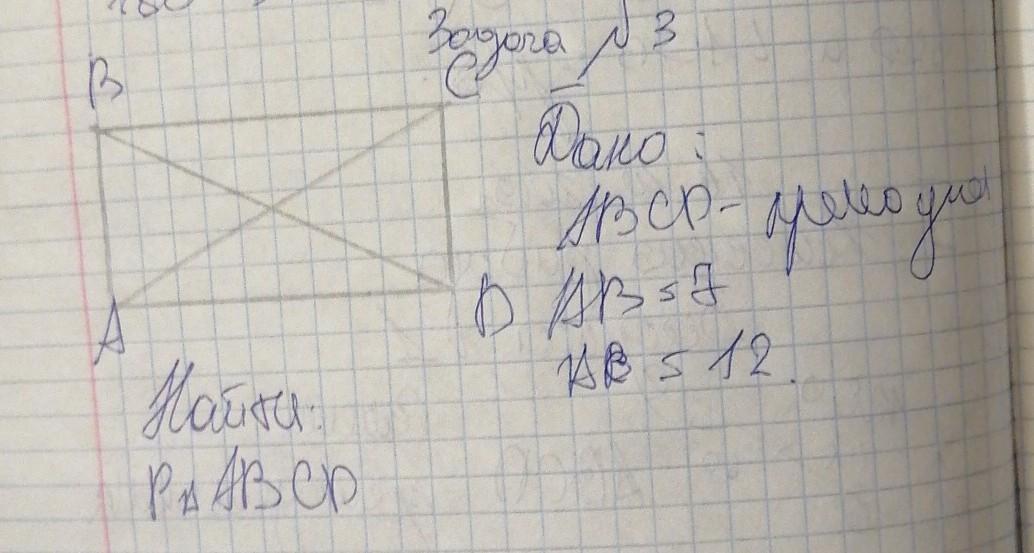 Задача № 3
B
C
Дано:
ABCD - прямоугол
A
D
AB = 7
AC = 12.
Найти:
P ABCD